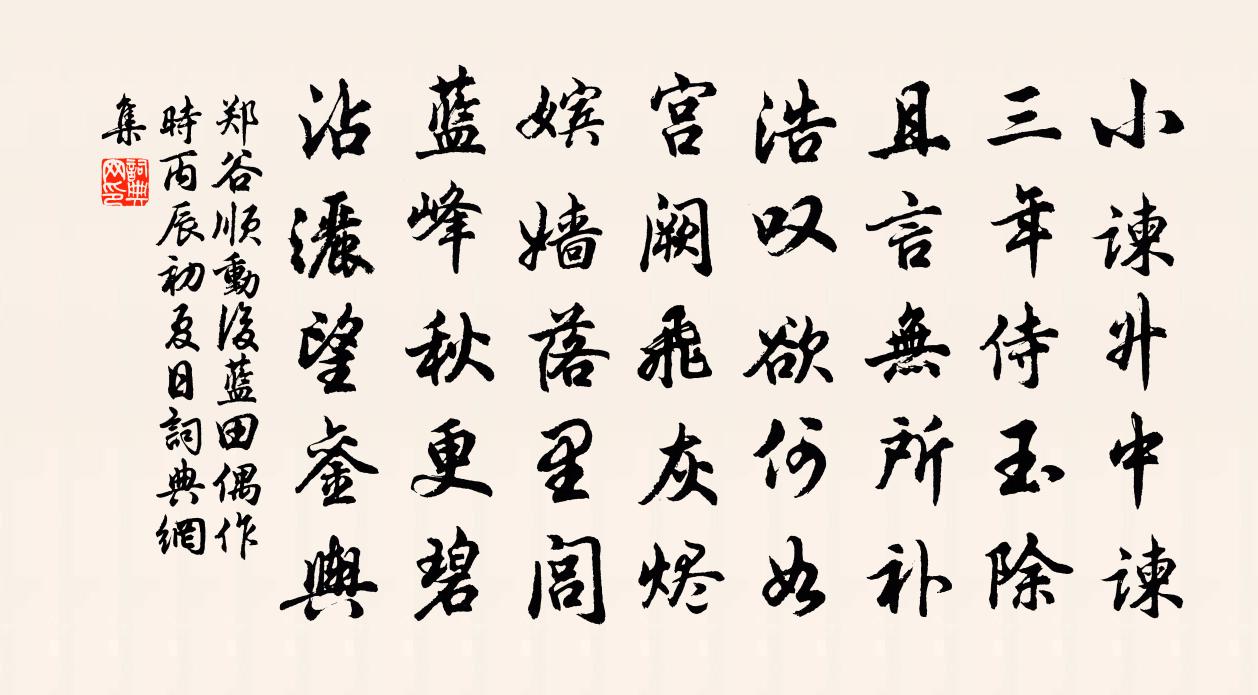 小谏升中谏
三年侍玉除
且言無所补
浩叹欲何如
宫阙飛灰烬
嫔嫱落里闾
藍峰秋更碧
沾灑望銮輿
郑谷顺動後藍田偶作
時丙辰初夏日詞典網
集
詞典网印